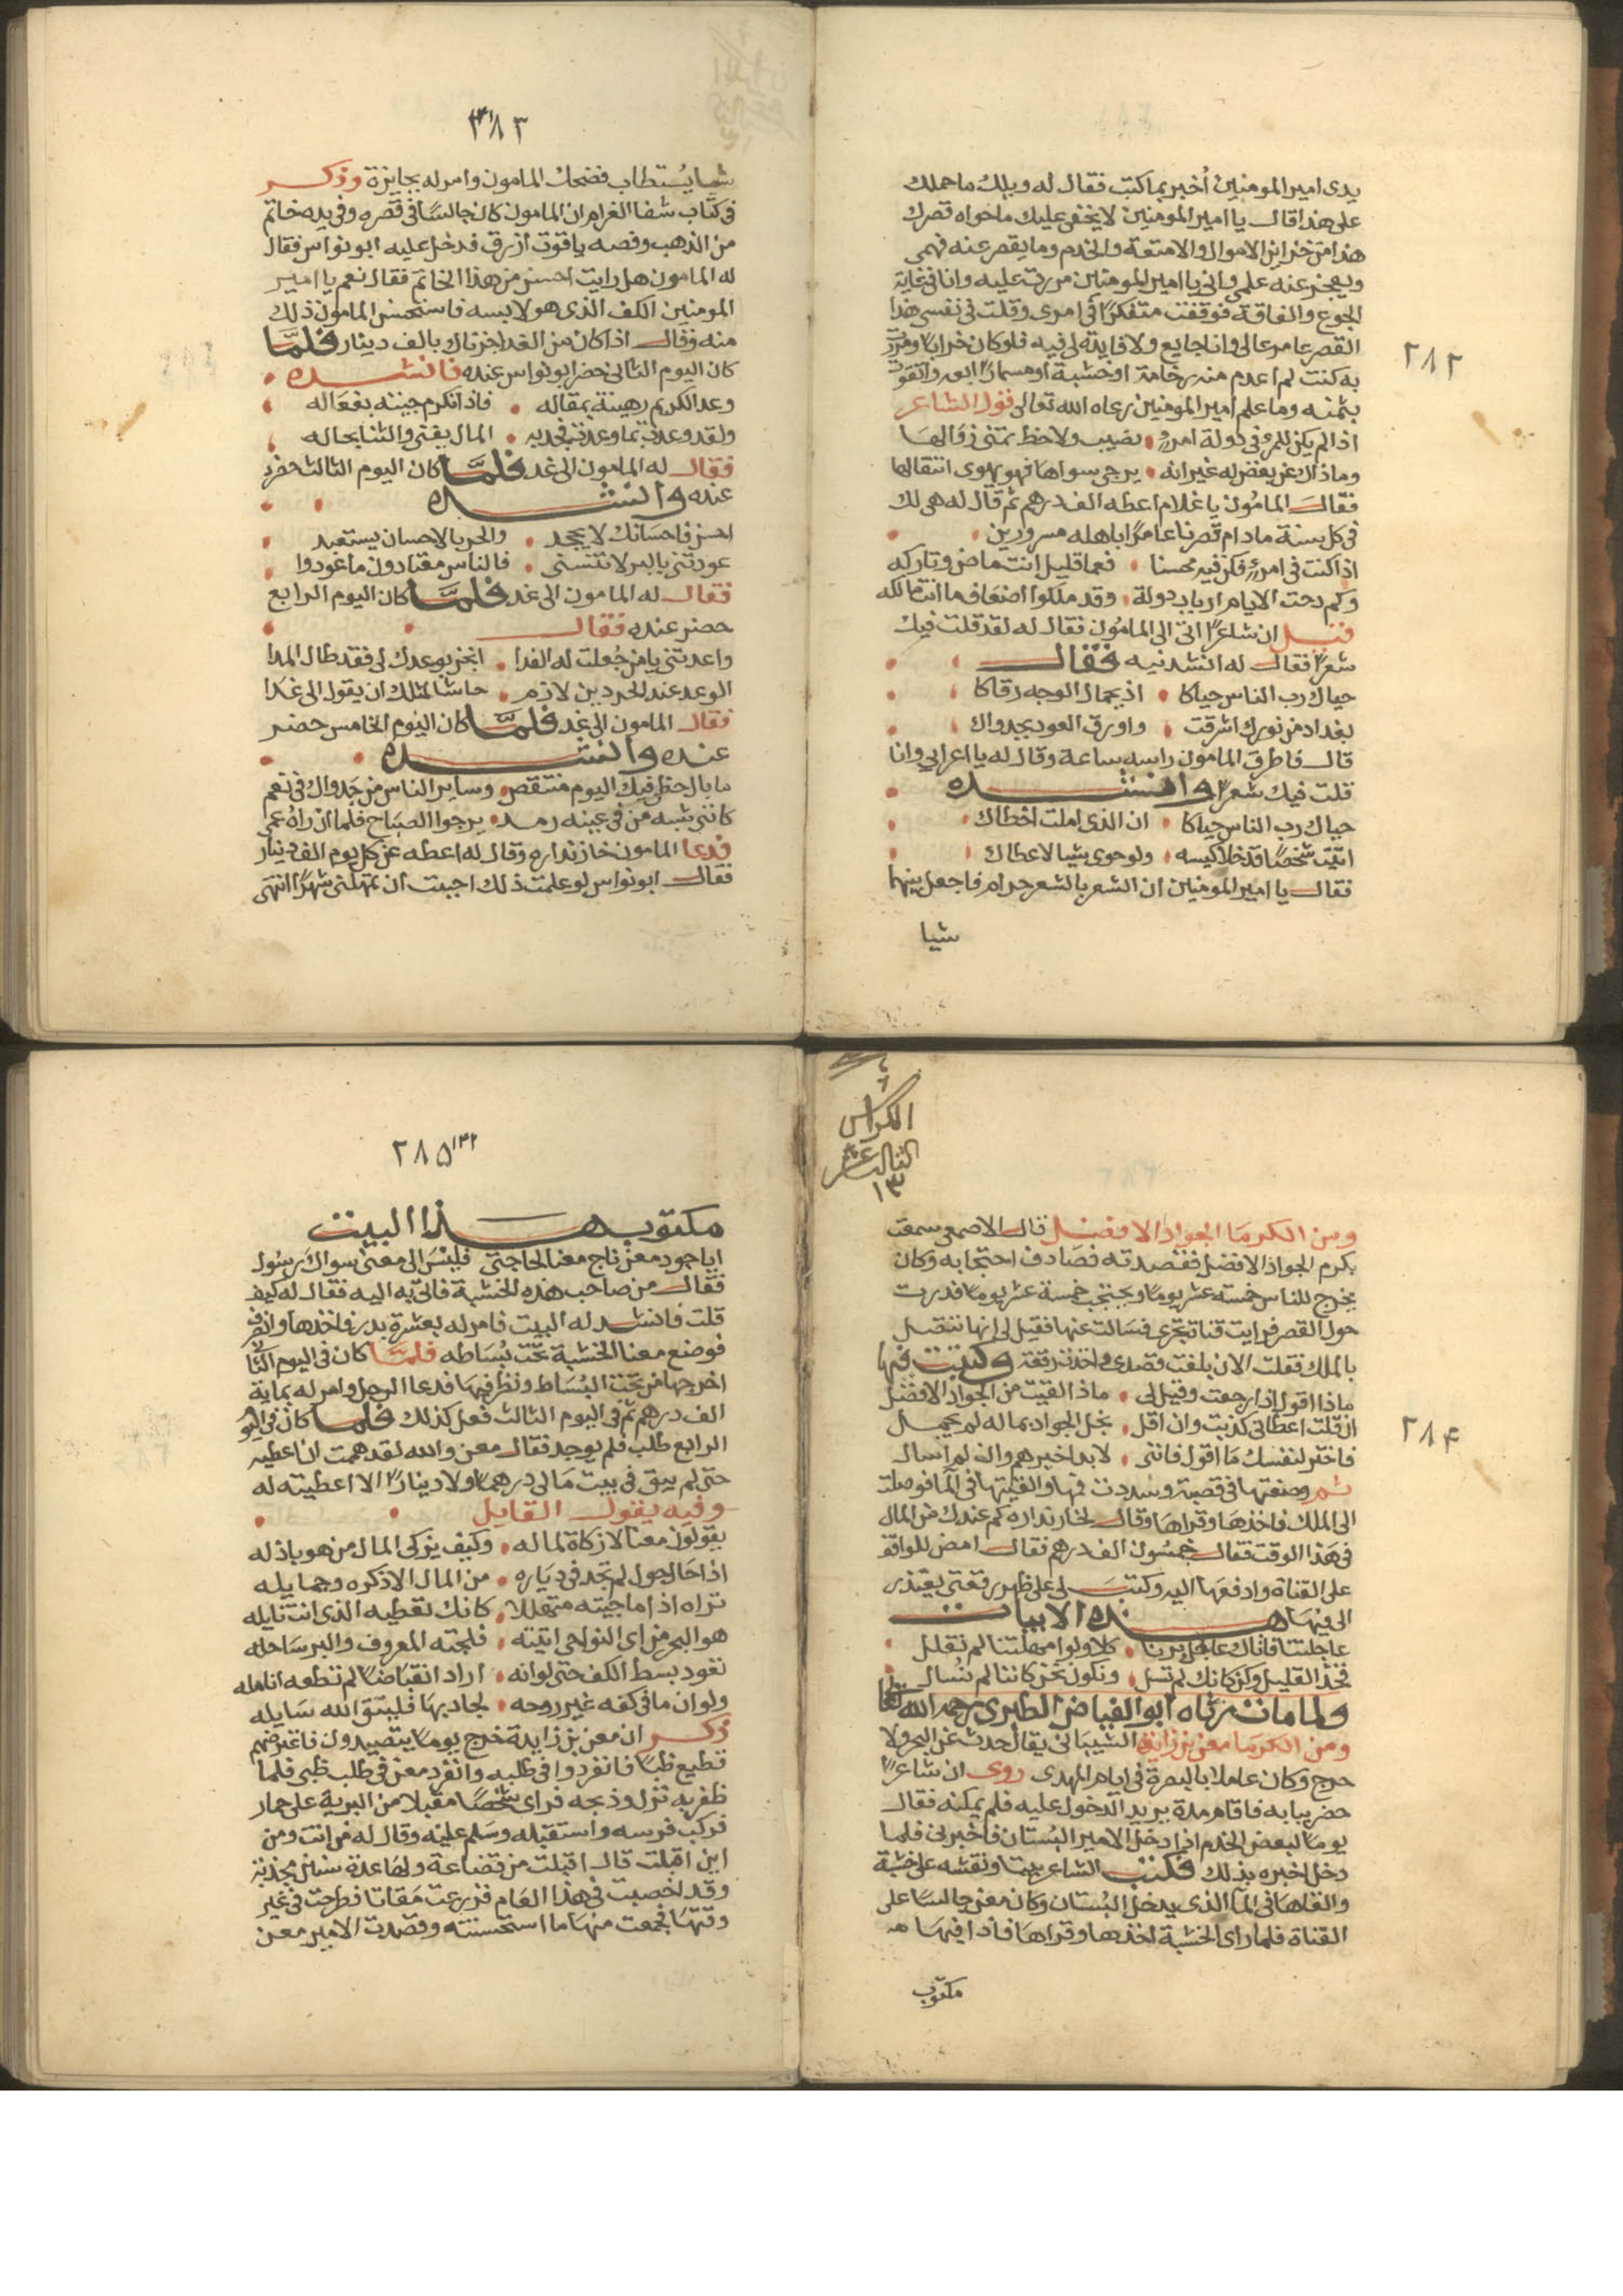 ٢٨٢
يدى امير المومنين أخبر بما كتبت فقال له ويلك ما حملك
على هذا قال يا امير المومنين لا يخفى عليك ما حواه قصرك
هذا من خزاين الاموال والامتعة والخدم وما يقصر عنه فهمى
ويعجز عنه علمى وانى يا امير المومنين مررت عليه وانا فى غاية
الجوع والفاقة فوقفت متفكرًا فى امرى وقلت فى نفسى هذا
القصر عامر عالى وانا جايع ولا فايدة لى فيه فلو كان خرابًا ومررت
به كنت لم اعدم منه رخامة او خشبة او مسمارًا ابيعه واتقوت
بثمنه وما علم امير المومنين رعاه الله تعالى قول الشاعر
اذا لم يكن للمرء فى دولة امرء نصيب ولا حظ تمنى زوالها
وما ذاك عن بغض له غير انه يرجى سواها فهو يهوى انتقالها
فقال المامون يا غلام اعطه الف درهم ثم قال له هى لك
فى كل سنة ما دام قصرنا عامرًا باهله مسرورين
اذا كنت فى امرء فكن فيه محسنا فعما قليل انت ماض وتاركه
وكم دحت الايام ارباب دولة وقد ملكوا اضعاف ما انت مالكه
قيل ان شاعرًا اتى الى المامون فقال له لقد قلت فيك
شعرًا فقال له انشدنيه فقال
حياك رب الناس حياكا اذ بجمال الوجه رقاكا
بغداد من نورك اشرقت واورق العود بجدواك
قال فاطرق المامون راسه ساعة وقال له يا اعرابى وانا
قلت فيك شعرًا وانشده
حياك رب الناس حياكا ان الذى املت اخطاك
اتيت شخصًا قد خلا كيسه ولو حوى شيا لاعطاك
فقال يا امير المومنين ان الشعر بالشعر حرام فاجعل بينهما
شيا
٢٨٣
شيا يُستطاب فضحك المامون وامر له بجايزة وذكر
فى كتاب شفا الغرام ان المامون كان جالسًا فى قصره وفى يده خاتم
من الذهب وفصه ياقوت ازرق فدخل عليه ابو نواس فقال
له المامون هل رايت احسن من هذا الخاتم فقال نعم يا امير
المومنين الكف الذى هو لابسه فاستحسن المامون ذلك
منه وقال اذا كان من الغد اجزناك بالف دينار فلمّا
كان اليوم الثانى حضر ابو نواس عنده فانشده
وعد الكريم رهينة بمقاله فاذا تكرم جيته بفعاله
ولقد وعدت بما وعدت فجد به المال يفنى والثنا بحاله
فقال له المامون الى غد فلمّا كان اليوم الثالث حضر
عنده وانشده
احسن فاحسانك لا يجحد والحر بالاحسان يستعبد
عودتنى بالبر لا تنسنى فالناس معتادون ما عودوا
فقال له المامون الى غد فلمّا كان اليوم الرابع
حضر عنده فقال
واعدتنى يا من جُعلت له الفدا انجز بوعدك لى فقد طال المدا
الوعد عند الحر دين لازم حاشا لمثلك ان يقول الى غدا
فقال المامون الى غد فلمّا كان اليوم الخامس حضر
عنده وانشده
ما بال حظى فيك اليوم منتقص وساير الناس من جدواك فى نعم
كاننى شبه من فى عينه رمد يرجوا الصباح فلما ان راهُ عمى
فدعا المامون خازنداره وقال له اعطه عن كل يوم الف دينار
فقال ابو نواس لو علمت ذلك احببت ان تمهلنى شهرًا انتهى
الكراس
الثالث عشر
١٣
٢٨٤
ومن الكرما الجواد الافضل قال الاصمعى سمعت
بكرم الجواد الافضل فقصدته فصادف احتجابه وكان
يخرج للناس خمسة عشر يومًا ويحتجب خمسة عشر يومًا فدرت
حول القصر فرايت قناة تجرى فسالت عنها فقيل لى انها تتصل
بالملك فقلت الان بلغت قصدى واخذت رقعة وكتبت فيها
ماذا اقول اذا رجعت وقيل لى ماذا لقيت من الجواد الافضل
ان قلت اعطانى كذبت وان اقل بخل الجواد بماله لم يجمل
فاختر لنفسك ما اقول فاننى لا بد اخبرهم وان لم اسال
ثم وضعتها فى قصبة وسددت فمها والقيتها فى الما فوصلت
الى الملك فاخذها وقراها وقال لخازنداره كم عندك من المال
فى هذا الوقت فقال خمسون الف درهم فقال امض للواقف
على القناة وادفعها اليه وكتب لى على ظهر رقعتى يعتذر
الى فيها هذه الابيات
عاجلتنا فاتاك عاجل برنا كلا ولو امهلتنا لم نقلل
فخذ القليل وكن كانك لم تسل ونكون نحن كاننا لم نُسال
ولما مات رثاه ابو الفياض الطبرى رحمه الله تعالى
ومن الكرما معن بن زايدة الشيبانى يقال حدث عن البحر ولا
حرج وكان عاملا بالبصرة فى ايام المهدى روى ان شاعرًا
حضر ببابه فاقام مدة يريد الدخول عليه فلم يمكنه فقال
يومًا لبعض الخدم اذا دخل الامير البُستان فاخبرنى فلما
دخل اخبره بذلك فكتب الشاعر بيتا ونقشه على خشبة
والقاها فى الما الذى يدخل البُستان وكان معن جالسًا على
القناة فلما راى الخشبة اخذها وقراها فاذا فيها
مكتوب
٢٨٥
مكتوب هذا البيت
ايا جود معن ناج معنا بحاجتى فليْسَ الى معن سواك رسُول
فقال من صاحب هذه الخشبة فاتى به اليه فقال له كيف
قلت فانشد له البيت فامر له بعشرة بدر فاخذها وانصرف
فوضع معن الخشبة تحت بُساطه فلمّا كان فى اليوم الثانى
اخرجها من تحت البُساط ونظر فيها فدعا الرجل وامر له بماية
الف درهم ثم فى اليوم الثالث فعل كذلك فلما كان فى اليوم
الرابع طلب فلم يوجد فقال معن والله لقد هممت ان اعطيه
حتى لم يبق فى بيت مالى درهمًا ولا دينارًا الا اعطيته له
وفيه يقول القايل
يقولون معن لا زكاة لماله وكيف يزكى المال من هو باذله
اذا حال حول لم تجد فى دياره من المال الا ذكره وجمايله
تراه اذا ما جيته متهللا كانك تعطيه الذى انت نايله
هو البحر من اى النواحى اتيته فلجته المعروف والبر ساحله
تعود بسط الكف حتى لو انه اراد انقباضًا لم تطعه انامله
ولو ان ما فى كفه غير روحه لجاد بها فليتق الله سايله
ذكر ان معن بن زايدة خرج يومًا يتصيد ون فاعترضهم
قطيع ظبا فانفردوا فى طلبه وانفرد معن فى طلب ظبى فلما
ظفر به نزل وذبحه فراى شخصًا مقبلا من البرية على حمار
فركب فرسه واستقبله وسلم عليه وقال له من انت ومن
اين اقبلت قال اقبلت من قضاعة ولها عدة سنين مجدبة
وقد اخصبت فى هذا العام فزرعت مقاتا فطرحت فى غير
وقتها فجمعت منها ما استحسنته وقصدت الامير معن